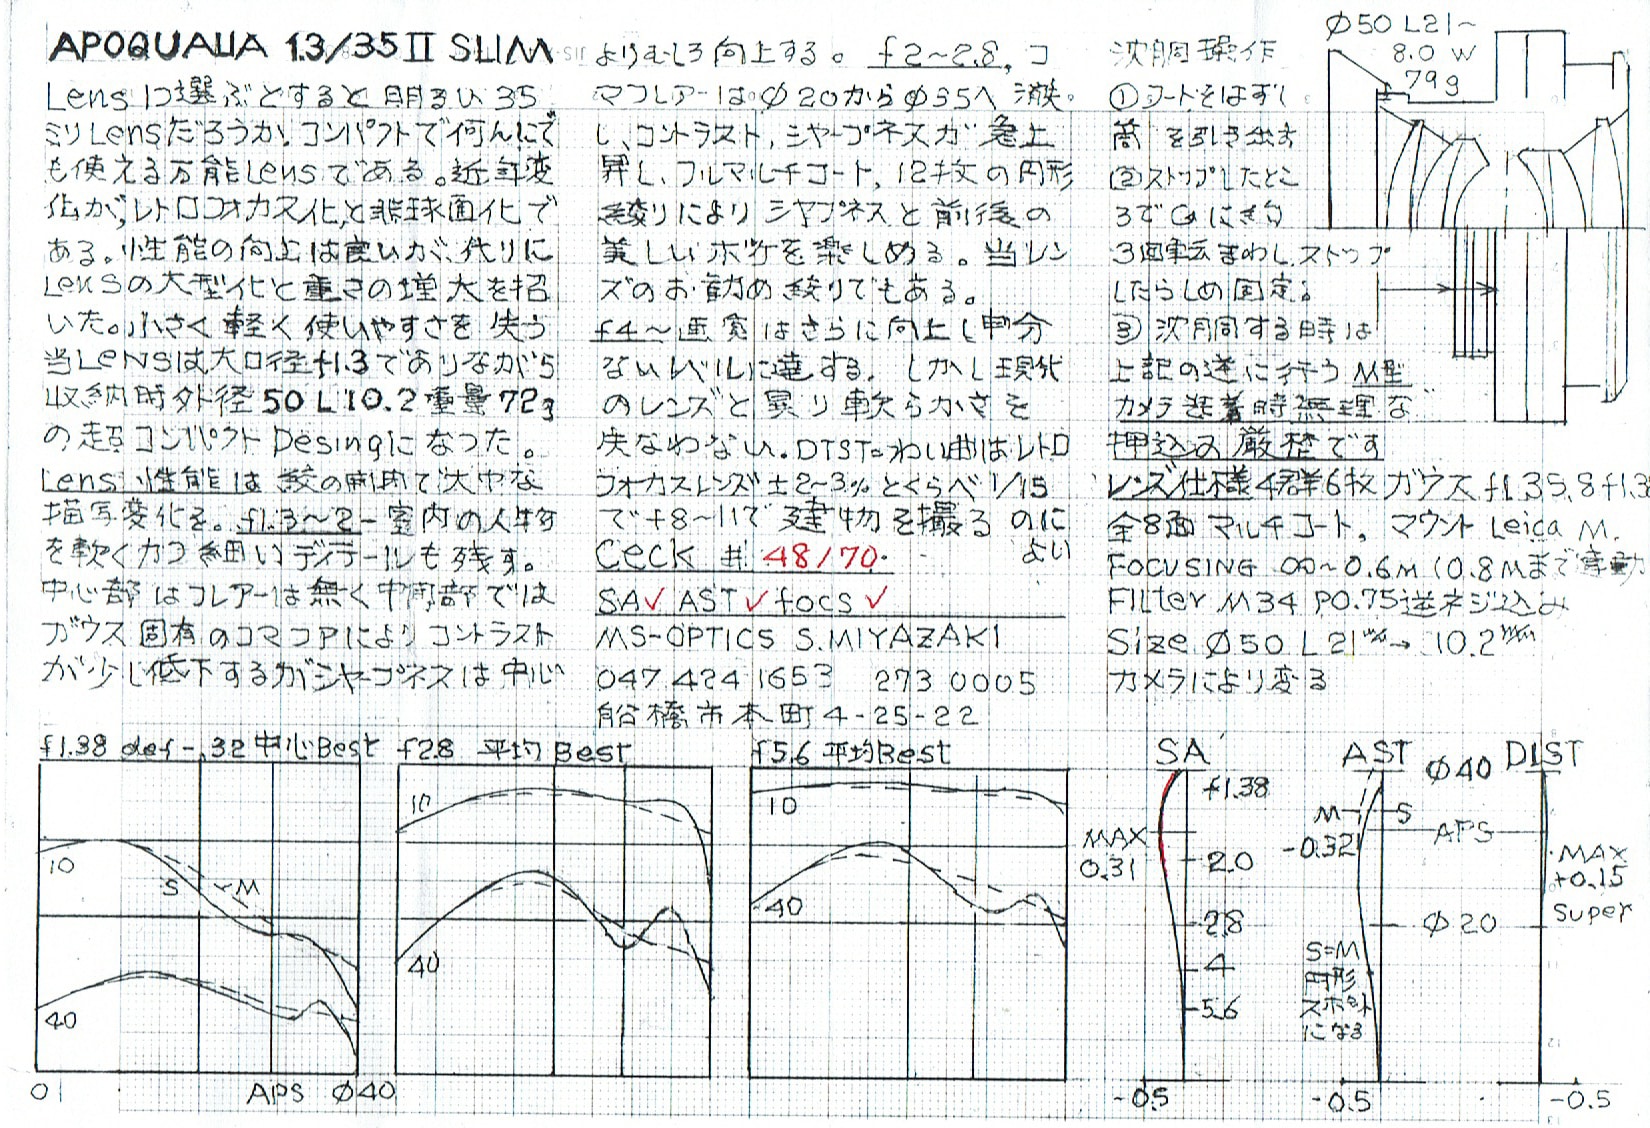 APOQUALIA 1.3/35 II SLIM
Lens 1つ選ぶとすると明るい35
ミリLensだろうか.コンパクトで何んにで
も使える万能Lensである。近年変
化が,レトロフォカス化,と非球面化で
ある。性能の向上は良いが、代りに
Lensの大型化と重さの増大を招
いた。小さく軽く使いやすさを失う
当LENSは大口径f1.3でありながら
収納時外径50 L10.2重量72g
の超コンパクトDesingになった。
Lens性能は絞の開閉で大巾な
描写変化を。f1.3~2-室内の人物
を軟くカつ細いディテールも残す。
中心部はフレアーは無く中間部では
ガウス固有のコマコアによりコントラスト
が少し低下するがシャープネスは中心
よりむしろ向上する。f2~2.8,コ
マフレアーはφ20からφ35へ 激
し、コントラスト,シャープネスが急上
昇し、フルマルチコート,12枚の円形
絞りによりシヤプネスと前後の
美しいボケを楽しめる。当レン
ズのお勧め絞りでもある。
f4~画質はさらに向上し申分
ないレベルに達する. しかし現代
のレンズと異り軟らかさを
失なわない.DTST=わい曲はレトロ
フォカスレンズ±2~3%とくらべ1/15
でf8~11で建物を撮るのに
よい
Ceck # 48/70.
SA✓ AST✓ focs✓
MS-OPTICS S.MIYAZAKI
047 424 1653 273 0005
船橋市本町4-25-22
沈胴操作
①フードをはずし
筒を引き出す
②ストップしたとこ
ろで に約
3回転まわし,ストップ
したらしめ固定る
③沈胴する時は
上記の逆に行う M型
カメラ装着時無理な
押込み厳禁です
レンズ仕様4群6枚ガウスf1.35,8f1.3
全8面マルチコート, マウントLeica M.
FOCUSING ∞~0.6M(0.8Mまで連動
Filter M34 P0.75逆ネジ込み
Size φ50 L21mm→10.2mm
カメラにより変る
φ50 L21~
8.0 W
79g
f1.38 def-.32中心Best
10
S
M
40
0
APS φ40
f2.8 平均Best
10
40
f5.6 平均Best
10
40
SA
f1.38
MAX
0.31
2.0
2.8
4
5.6
-0.5
AST
φ40
M
S
APS
-0.32
φ20
S=M
円形
スポット
になる
-0.5
DIST
MAX
+0.15
super
-0.5